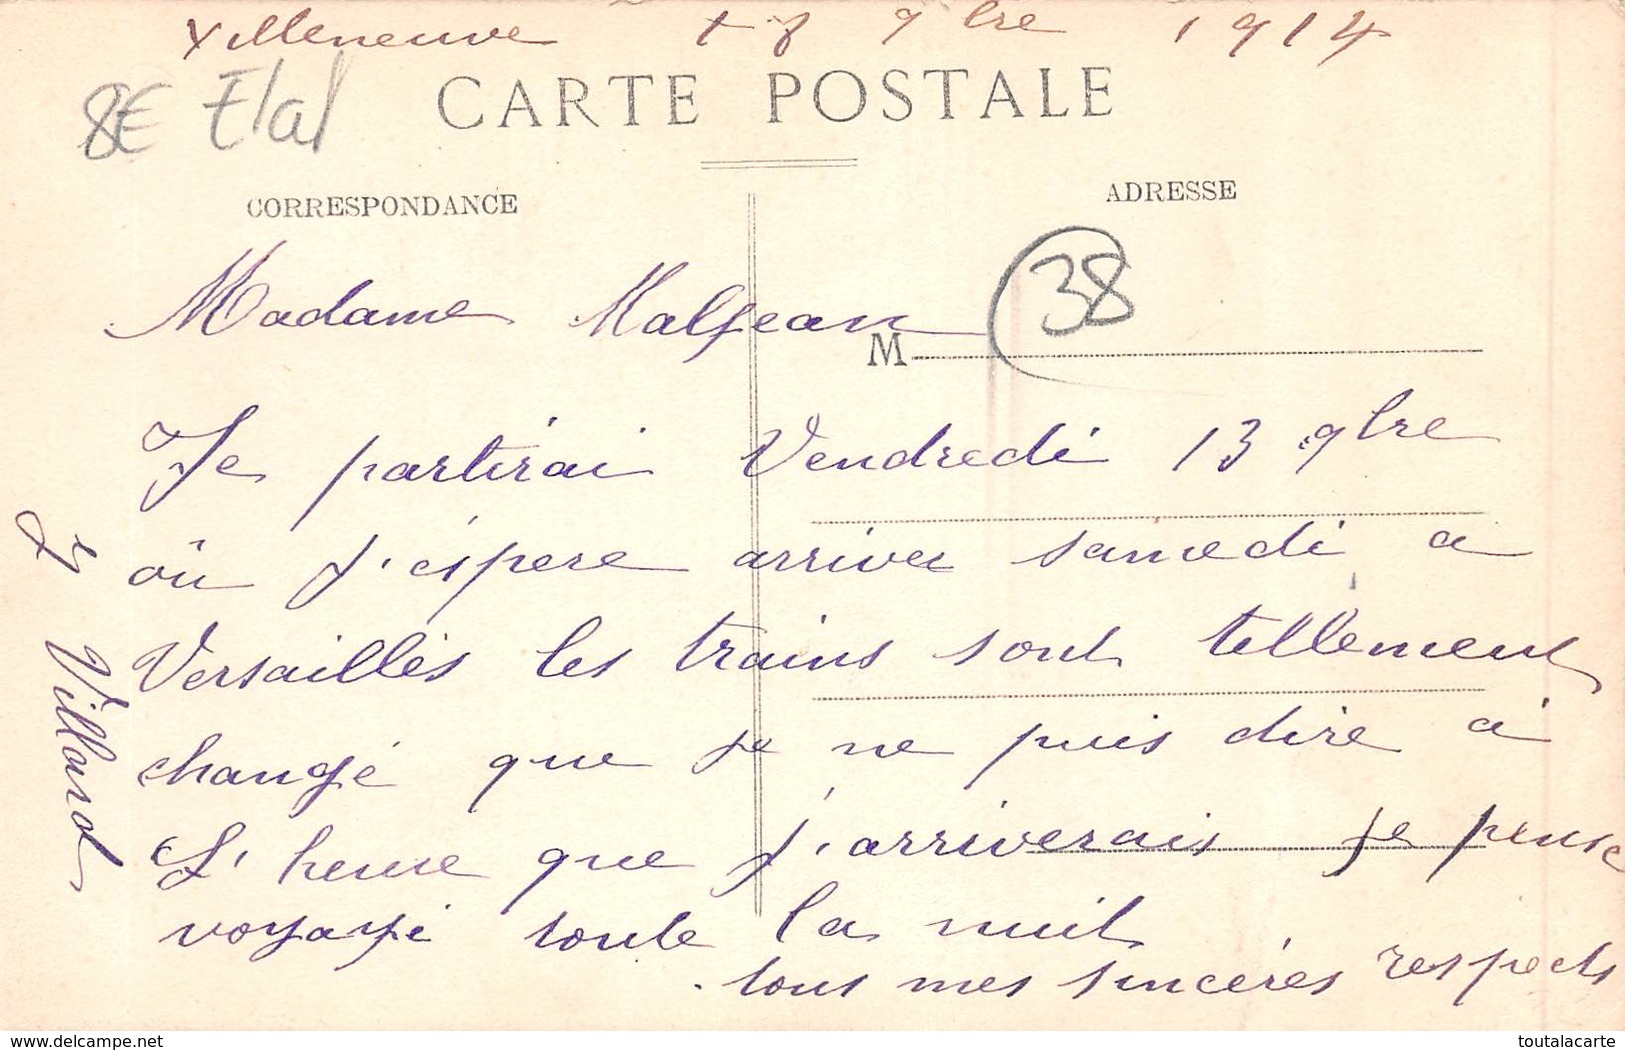 Villeneuve 9bre 1914
8€ Etat
CARTE POSTALE
CORRESPONDANCE
ADRESSE
38
Madame Maljean
M
Je partirai Vendredi 13 9bre
où j'éspere arriver samedi a
Versailles les trains sont tellement
changé que je ne puis dire à
L'heure que j'arriverais je pense
voyagé toute la nuit
tous mes sincéres respects
Villard
delcampe.net
toutalacarte